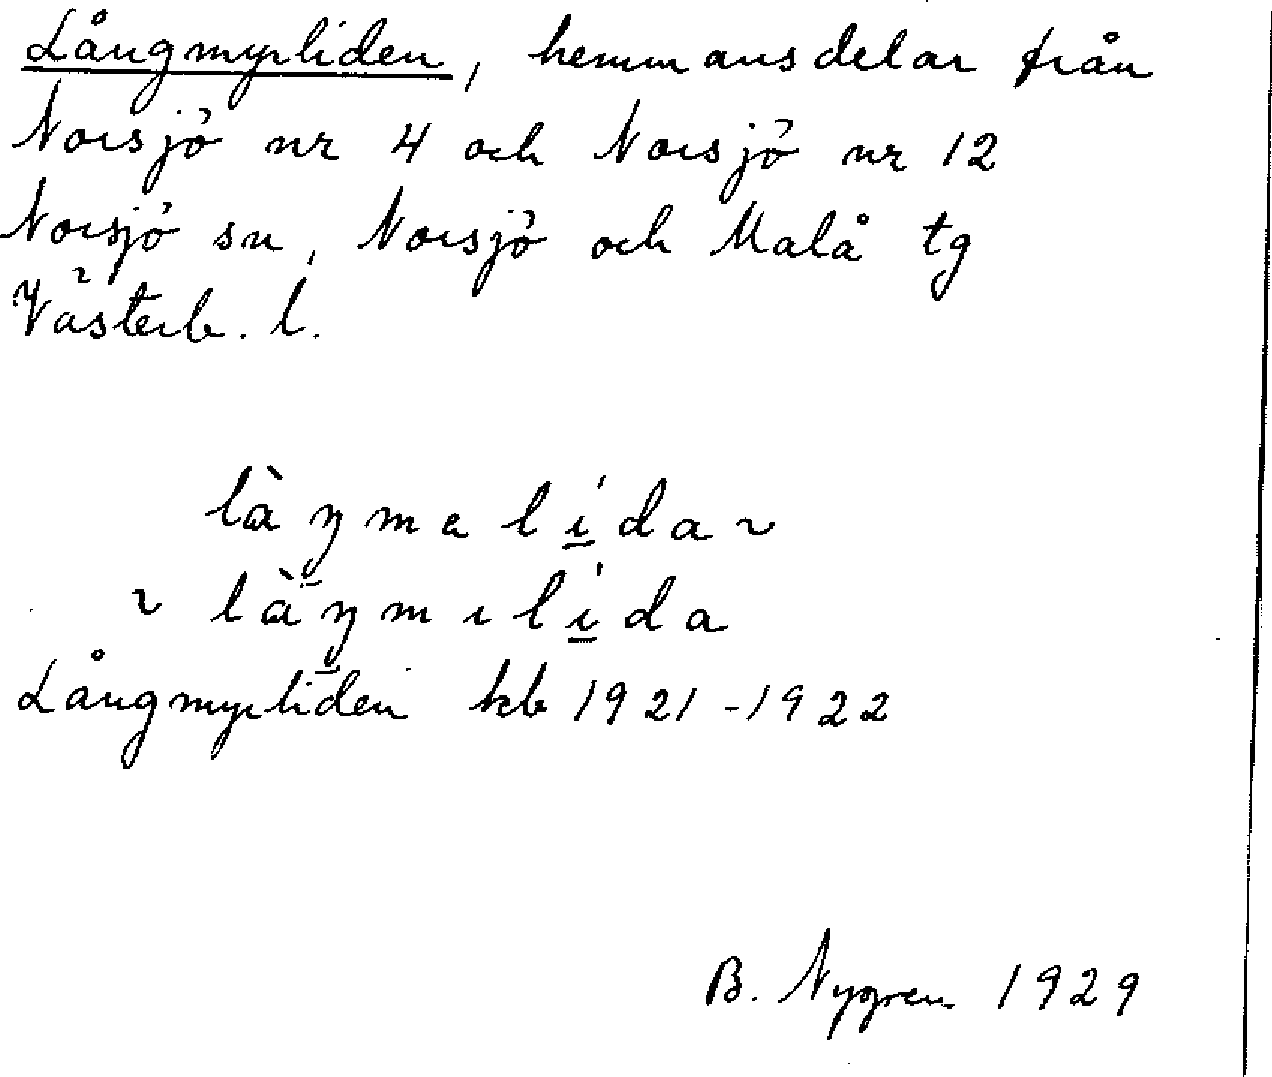 Långmyrliden, hemmansdelar från
Norsjö nr 4 och Norsjö nr 12
Norsjö sn, Norsjö och Malå tg
Västerb. l.
là̱ŋmɐlí̱da ~
~ là̱ŋmılí̱da
Långmyrliden kb 1921-1922
B. Nygren 1929